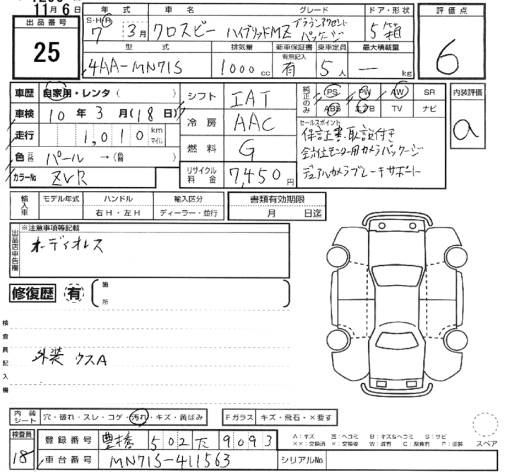 11月6日
出品番号 25
S・H・R 年式 車名 グレード ドア・形状 評価点
7 3月 クロスビー ハイブリッドMZ 5 箱
型式 排気量 新車保証書 乗車定員 最大積載量
有無記入
4AA-MN71S 1000cc 有 5人 ― kg 6
車歴 自家用・レンタ シフト IAT 純正のみ PS PW AW SR 内装評価
ABS エアB TV ナビ
車検 10年3月(18日) 冷房 AAC セールスポイント a
走行 1,010 km マイル 保証書、取説付き
色 パール →
燃料 G 全方位モニター用カメラパッケージ
カラーNo ZVR リサイクル料金 7,450円 デュアルカメラブレーキサポート
輸入車 モデル年式 ハンドル 輸入区分 書類有効期限
右H・左H ディーラー・並行 月 日迄
出品店申告欄 ※注意事項等記載
オーディオレス
修復歴 有 箇所
検査員記入欄
外装 ウスA
内装シート 穴・破れ・スレ・コゲ・汚れ・キズ・黄ばみ Fガラス キズ・飛石・×要す
検査員 18 登録番号 豊橋 502 9093
スペア
車台番号 MN71S-411563 シリアルNo.